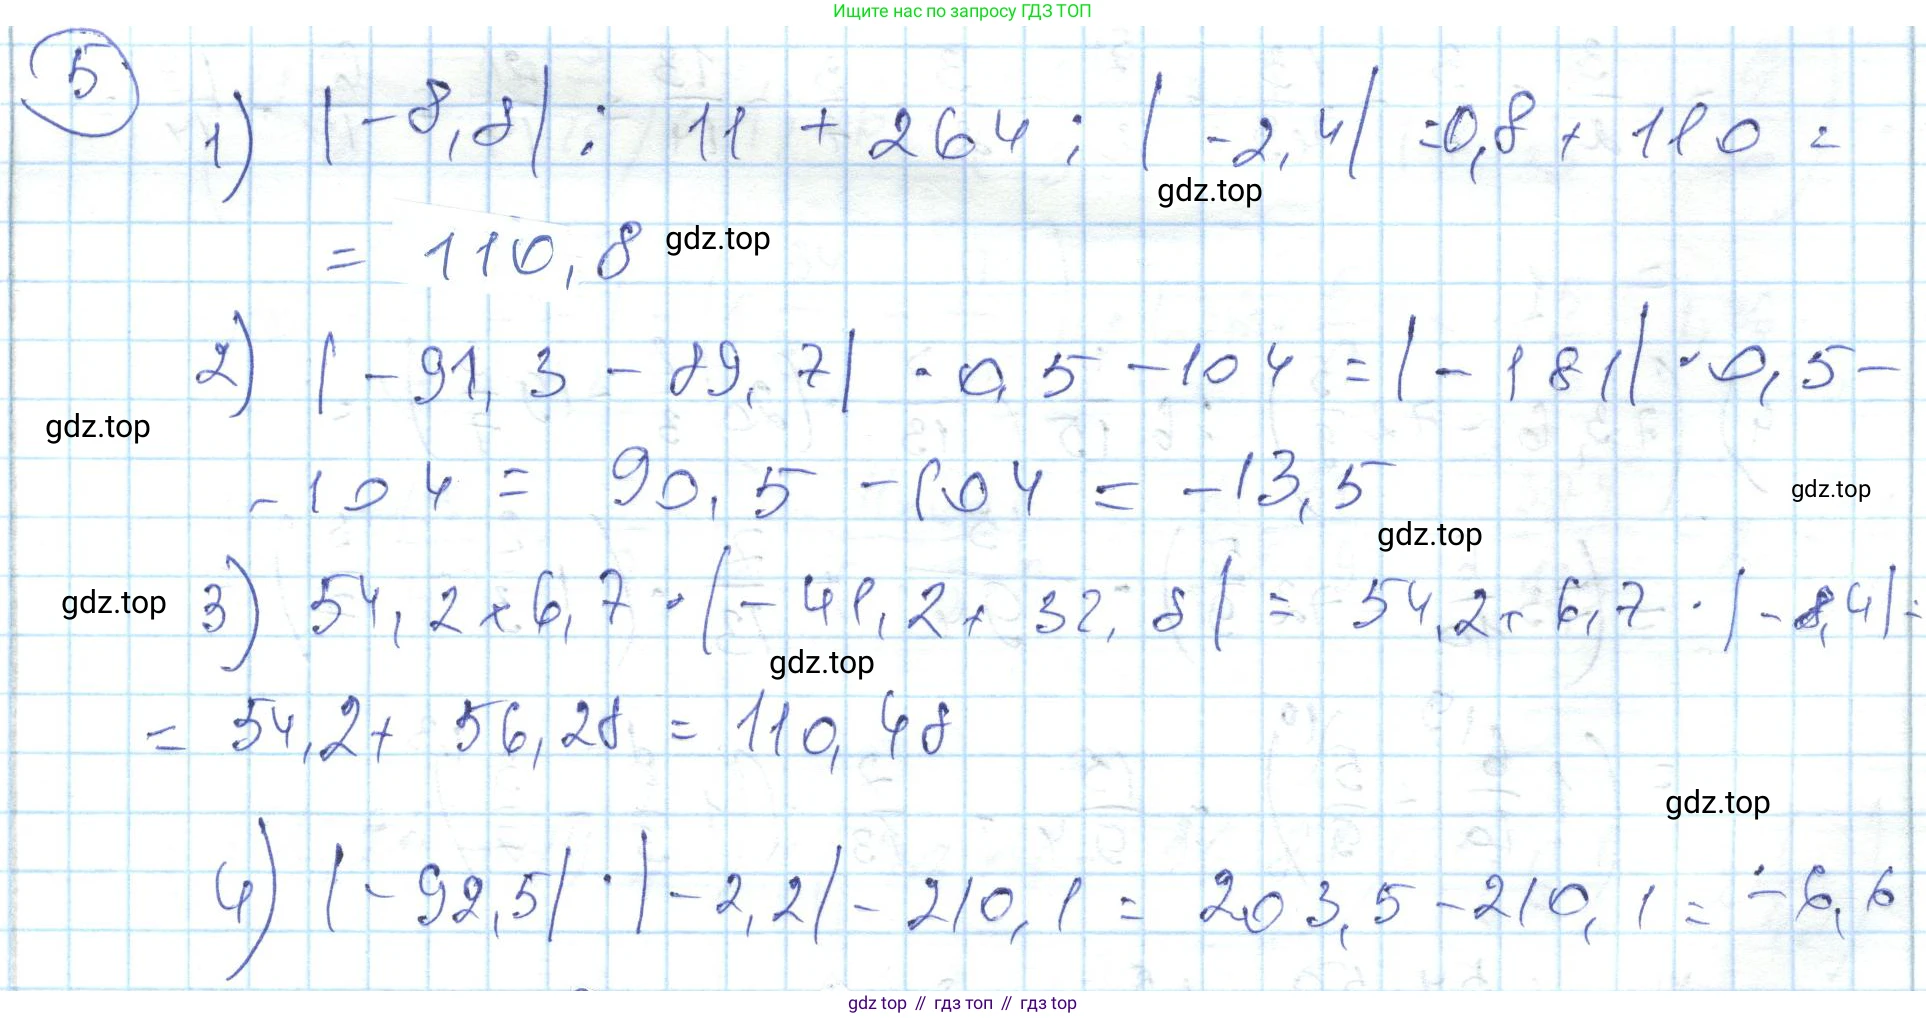 Ищите нас по запросу ГДЗ ТОП
5
1) |-8,8| : 11 + 264 : |-2,4| = 0,8 + 110 =
gdz.top
= 110,8 gdz.top
2) |-91,3 - 89,7| · 0,5 - 104 = |-181| · 0,5 -
gdz.top
- 104 = 90,5 - 104 = -13,5
gdz.top
gdz.top
gdz.top
3) 54,2 + 6,7 · |-41,2 + 32,8| = 54,2 + 6,7 · |-8,4| =
gdz.top
= 54,2 + 56,28 = 110,48
gdz.top
4) |-92,5| · |-2,2| - 210,1 = 203,5 - 210,1 = -6,6
gdz top // гдз топ // гдз top